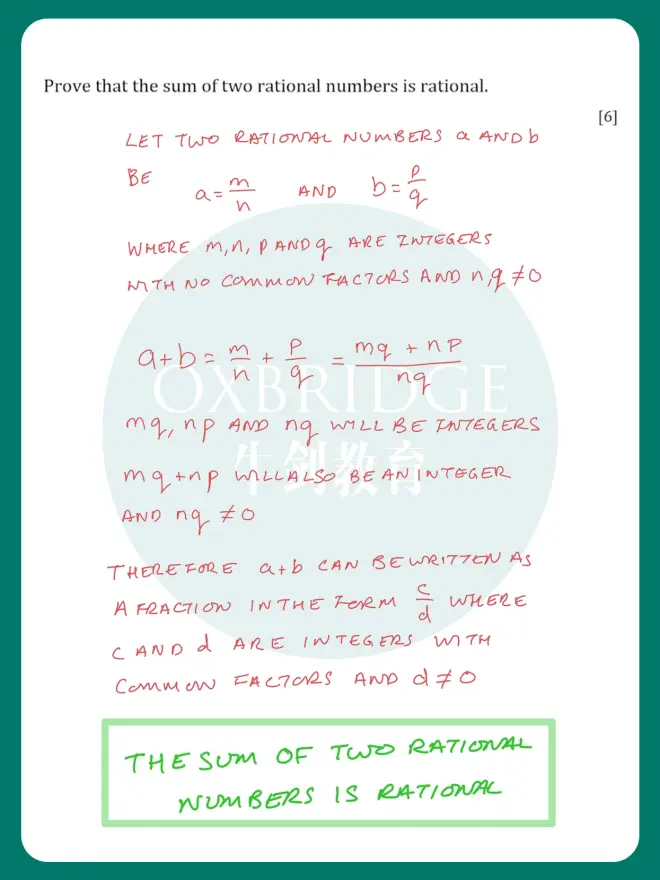 Prove that the sum of two rational numbers is rational.
[6]
LET TWO RATIONAL NUMBERS a AND b
BE a = m/n AND b = p/q
WHERE m, n, p AND q ARE INTEGERS
WITH NO COMMON FACTORS AND n, q ≠ 0
a + b = m/n + p/q = (mq + np)/nq
OXBRIDGE
mq, np AND nq WILL BE INTEGERS
牛剑教育
mq + np WILL ALSO BE AN INTEGER
AND nq ≠ 0
THEREFORE a+b CAN BE WRITTEN AS
A FRACTION IN THE FORM c/d WHERE
c AND d ARE INTEGERS WITH
COMMON FACTORS AND d ≠ 0
THE SUM OF TWO RATIONAL
NUMBERS IS RATIONAL